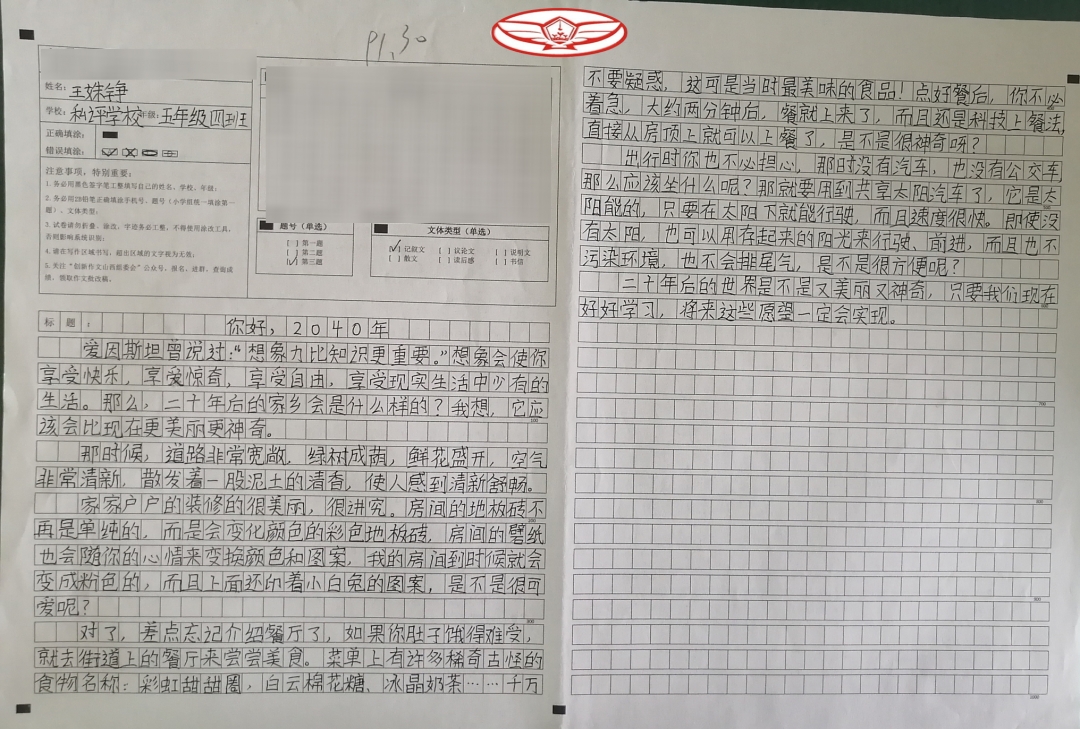 91.30
姓名：王姝铮
学校：私立评学校 年级：五年级四班
正确填涂：
错误填涂：
注意事项，特别重要：
1. 务必用黑色签字笔工整填写自己的姓名、学校、年级；
2. 务必用2B铅笔正确填涂手机号、题号（小学组统一填涂第一题）、文体类型；
3. 试卷请勿折叠、涂改，字迹务必工整，不得使用涂改工具，否则影响系统识别；
4. 请在写作区域书写，超出区域的文字视为无效；
题号（单选）
[ ] 第一题
[ ] 第二题
[√] 第三题
文体类型（单选）
[√] 记叙文 [ ] 议论文 [ ] 说明文
[ ] 散文 [ ] 读后感 [ ] 书信
标题：你好，2040年
爱因斯坦曾说过：“想象力比知识更重要。”想象会使你
享受快乐，享受惊奇，享受自由，享受现实生活中少有的
生活。那么，二十年后的家乡会是什么样的？我想，它应
该会比现在更美丽更神奇。
那时候，道路非常宽敞，绿树成荫，鲜花盛开，空气
非常清新，散发着一股泥土的清香，使人感到清新舒畅。
家家户户的装修的很美丽，很讲究。房间的地板砖不
再是单纯的，而是会变化颜色的彩色地板砖，房间的壁纸
也会随你的心情来变换颜色和图案，我的房间到时候就会
变成粉色的，而且上面还印着小白兔的图案，是不是很可
爱呢？
对了，差点忘记介绍餐厅了，如果你肚子饿得难受，
就去街道上的餐厅来尝尝美食。菜单上有许多稀奇古怪的
食物名称：彩虹甜甜圈，白云棉花糖、冰晶奶茶……千万
不要疑惑，这可是当时最美味的食品！点好餐后，你不必
着急，大约两分钟后，餐就上来了，而且还是科技上餐法，
直接从房顶上就可以上餐了，是不是很神奇呀？
出行时你也不必担心，那时没有汽车，也没有公交车，
那么应该坐什么呢？那就要用到共享太阳汽车了，它是太
阳能的，只要在太阳下就能行驶，而且速度很快。即使没
有太阳，也可以用存起来的阳光来行驶、前进，而且也不
污染环境，也不会排尾气，是不是很方便呢？
二十年后的世界是不是又美丽又神奇，只要我们现在
好好学习，将来这些愿望一定会实现。